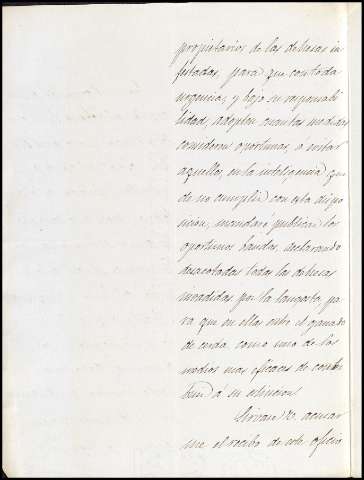 propietarios de las dehesas in
festadas, para que con toda
urgencia, y bajo su responsabi
lidad, adopten cuantas medidas
consideren oportunas, a evitar
aquello, en la inteligencia que
de no cumplir con esta dispo
sicion, mandaré publicar los
oportunos bandos, declarando
desacotadas todas las dehesas
invadidas por la langosta pa
ra que en ellas entre el ganado
de cerda como uno de los
medios mas eficaces de contri
buir á su estincion.
Sirvase V. acusar
me el recibo de este oficio